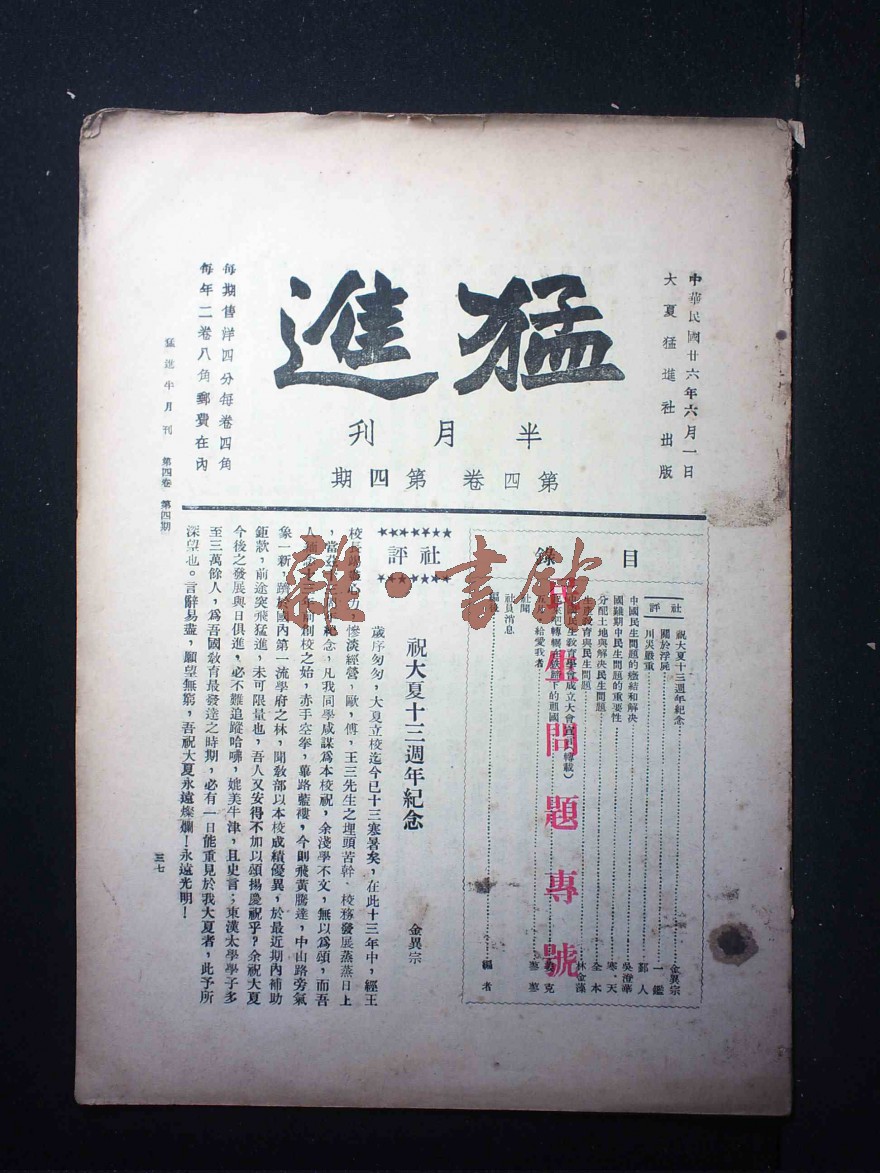 中華民國廿六年六月一日
大夏猛進社出版
猛進
半月刊
第四卷 第四期
每期售洋四分每卷四角
每年二卷八角郵費在內
猛進半月刊 第四卷 第四期
目錄
民生問題專號
社評
祝大夏十三週年紀念 金異宗
關於浮屍 一鑑
川災嚴重 鄞人
中國民生問題的癥結和解決 吳澄華
國難期中民生問題的重要性 寒.天
分配土地與解決民生問題 全本
教育與民生問題 林金藻
民生教育學會成立大會 轉載）
下的祖國 克
給愛我者 慕慕
社聞
社員消息
編後 編者
社評
祝大夏十三週年紀念
金異宗
歲序匆匆，大夏立校迄今已十三寒暑矣，在此十三年中，經王
校長 心力，慘淡經營，歐，傅，王三先生之埋頭苦幹、校務發展蒸蒸日上
，當 紀念，凡我同學咸謀為本校祝，余淺學不文，無以為頌，而吾
人 十三年前創校之始，赤手空拳，蓽路藍褸，今則飛黃騰達，中山路旁氣
象一新，躋於國內第一流學府之林，聞敎部以本校成績優異，於最近期內補助
鉅款，前途突飛猛進，未可限量也，吾人又安得不加以頌揚慶祝乎？余祝大夏
今後之發展與日俱進，必不難追蹤哈咈，媲美牛津，且史言；東漢太學學子多
至三萬餘人，為吾國敎育最發達之時期，必有一日能重見於我大夏者，此予所
深望也。言辭易盡，願望無窮，吾祝大夏永遠燦爛！永遠光明！
三七
雜·書館